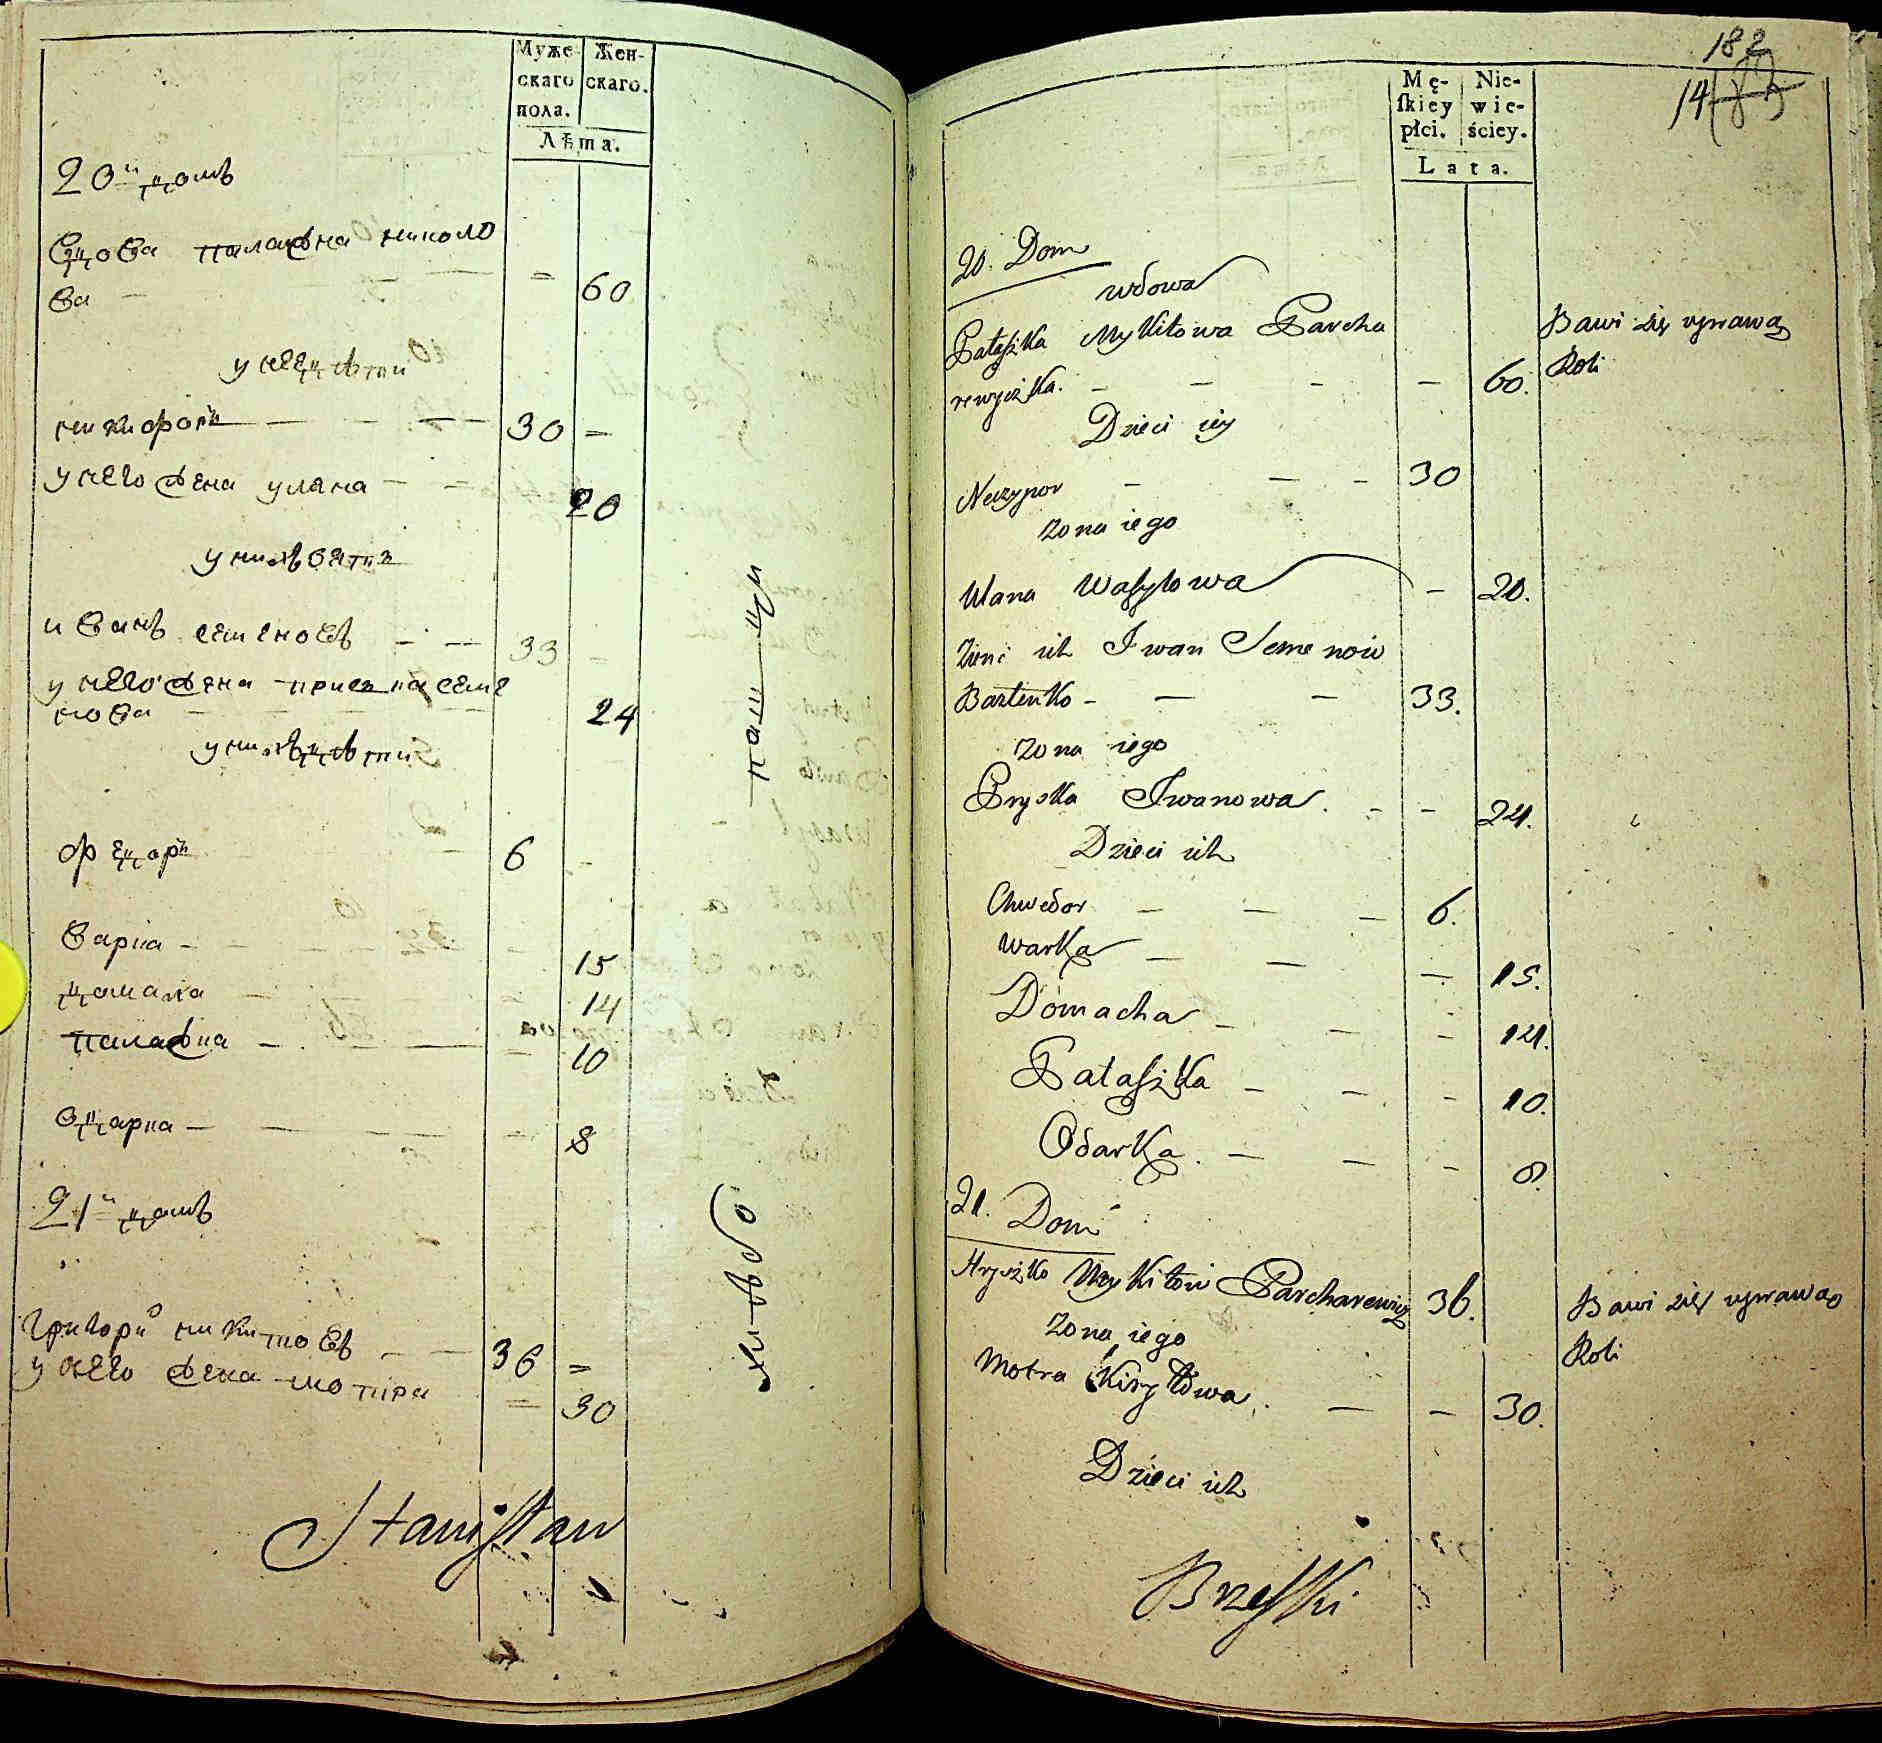 Муже- Жен-
скаго скаго.
пола.
Лѣта.
20й домъ
вдова палажка николо
ва — — — = 60
у неедѣти
никифоръ — — — 30 =
у него жена уляна — — 20
у нихъ зять
иванъ семеновъ — — 33 —
у него женаприська семе
нова — — 24
у нихъ дѣти
федоръ — 6 —
варка — — — 15
домаха — — 14
палажка — — — 10
одарка — — — 8
21й домъ
григорий никитовъ — — 36 =
у него жена мотра = 30
Stanisław
пашци
хлѣбо
182
14
Mę- Nie-
skiey wie-
płci. ściey.
Lata.
20. Dom
wdowa
Pałaszka Mykitowa Parcha
rewiczka. — — — — 60. Bawi się uprawą
Roli
Dzieci iey
Neczypor — — — 30
zona iego
Ulana Wasylowa — 20.
Zienć ich Iwan Semenow
Bartenko — — — 33.
zona iego
Pryska Iwanowa. — — 24.
Dzieci ich
Chwedor — — — 6.
Warka — — — 15.
Domacha — — — 14.
Pałaszka — — — 10.
Odarka. — — — 8.
21. Dom
Hryszko Mykitow Parcharewicz 36. Bawi się uprawą
Roli
zona iego
Motra Kiryłowa. — — 30.
Dzieci ich
Brzeski